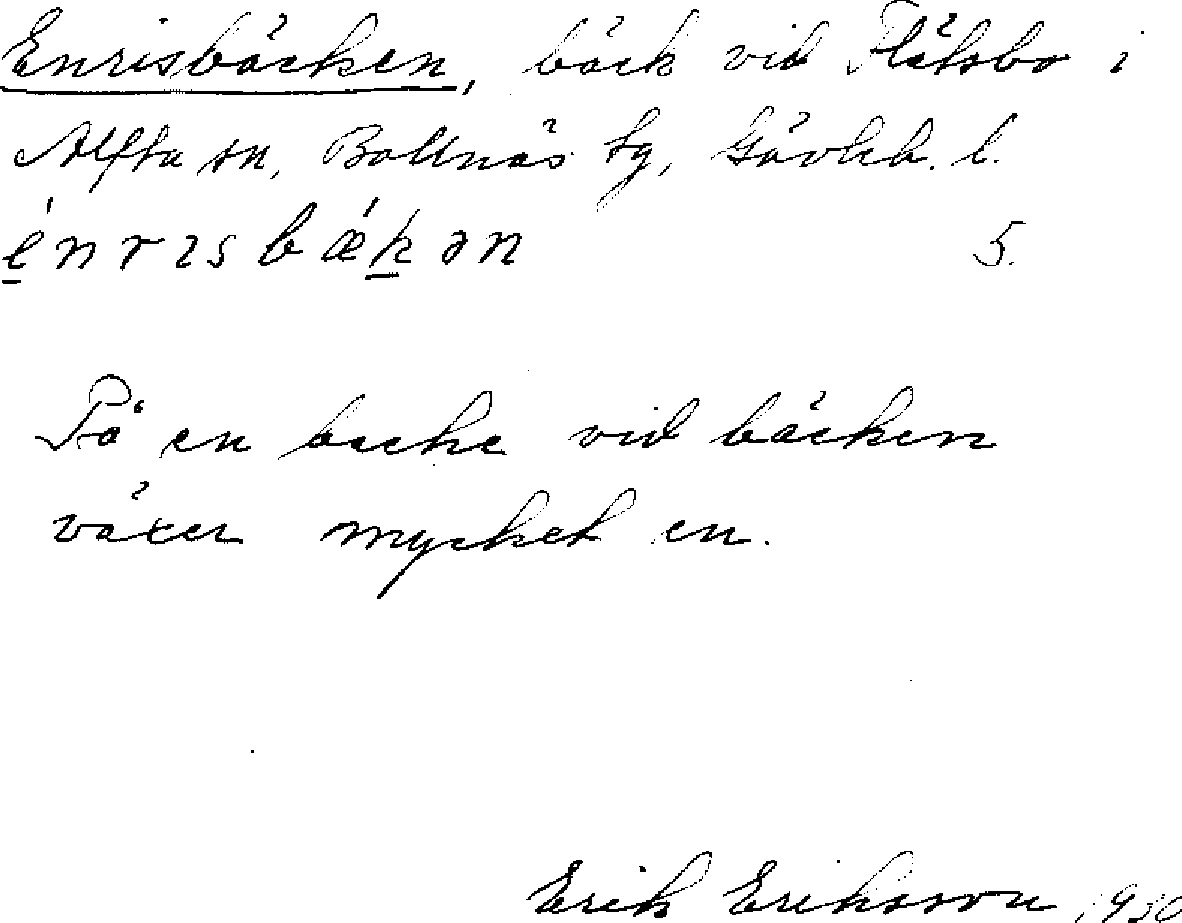 Enrisbäcken, bäck vid Flätsbo i
Alfta sn, Bollnäs tg, Gävleb. l.
é̱nrısbǽḵən 5.
På en backe vid bäcken
växer mycket en.
Erik Eriksson 1930